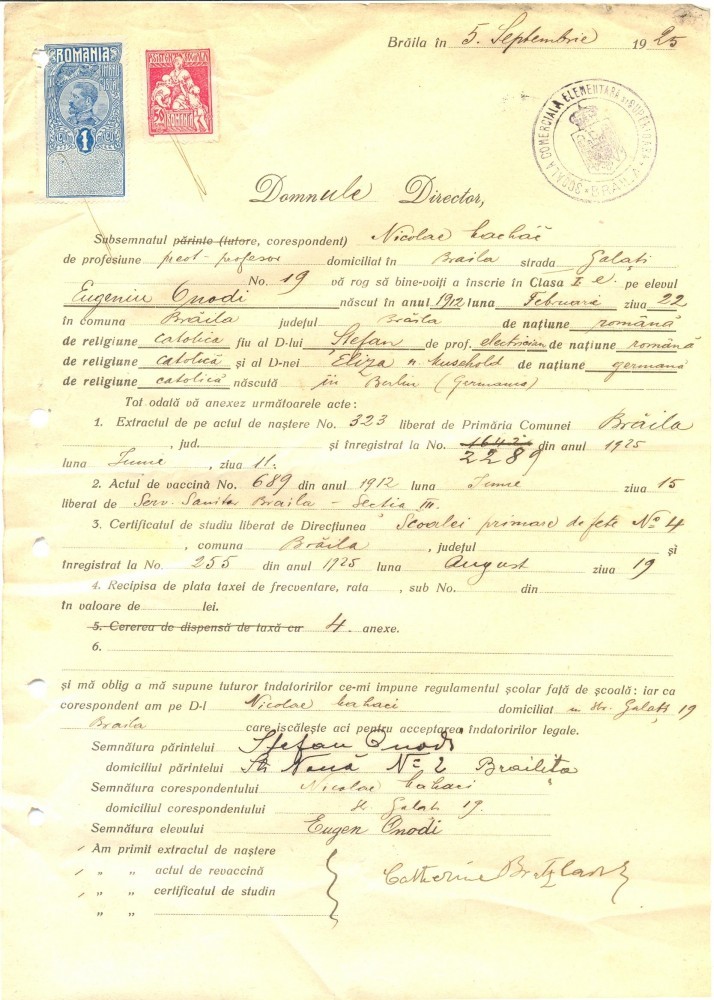 Brăila în 5. Septembrie 1925
ROMANIA
1
50
ROMANIA
SCOALA COMERCIALA ELEMENTARA
BRAILA
Domnule Director,
Subsemnatul părinte (tutore, corespondent) Nicolae
de profesiune domiciliat în Brăila strada Galați
No. 19 vă rog să bine-voiți a înscrie în Clasa I e. pe elevul
Eugeniu Onodi născut în anul 1912 luna Februarie ziua 22
în comuna Brăila județul Brăila de națiune română
de religiune catolica fiu al D-lui Stefan de prof. electrician de națiune română
de religiune catolică și al D-nei Eliza n. Musehold de națiune germană
de religiune catolică născută în Berlin (Germania)
Tot odată vă anexez următoarele acte:
1. Extractul de pe actul de naștere No. 323 liberat de Primăria Comunei Brăila
, jud. și înregistrat la No. 2289 din anul 1925
luna Iunie , ziua 11.
2. Actul de vaccină No. 689 din anul 1912 luna Iunie ziua 15
liberat de Serv. Sanitar Braila - Sectia III.
3. Certificatul de studiu liberat de Direcțiunea Scoalei primare de fete No 4
, comuna Brăila , județul și
înregistrat la No. 255 din anul 1925 luna August ziua 19
4. Recipisa de plata taxei de frecventare, rata , sub No. din
în valoare de lei.
5. Cererea de dispensă de taxă cu 4. anexe.
6.
și mă oblig a mă supune tuturor îndatoririlor ce-mi impune regulamentul școlar față de școală: iar ca
corespondent am pe D-l Nicolae domiciliat in str. Galați 19
Braila care iscălește aci pentru acceptarea îndatoririlor legale.
Semnătura părintelui Stefan Onodi
domiciliul părintelui Str Nouă No 2 Brailita
Semnătura corespondentului Nicolae
domiciliul corespondentului st Galati 19.
Semnătura elevului Eugen Onodi
Am primit extractul de naștere
„ „ actul de revaccină
„ „ certificatul de studiu
„ „
Catherine